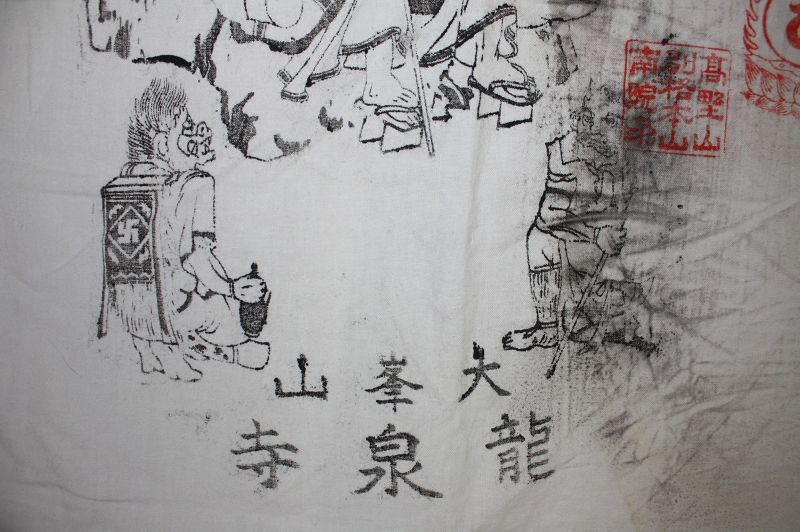 高野山
別格本山
南院
大峯山
龍泉寺